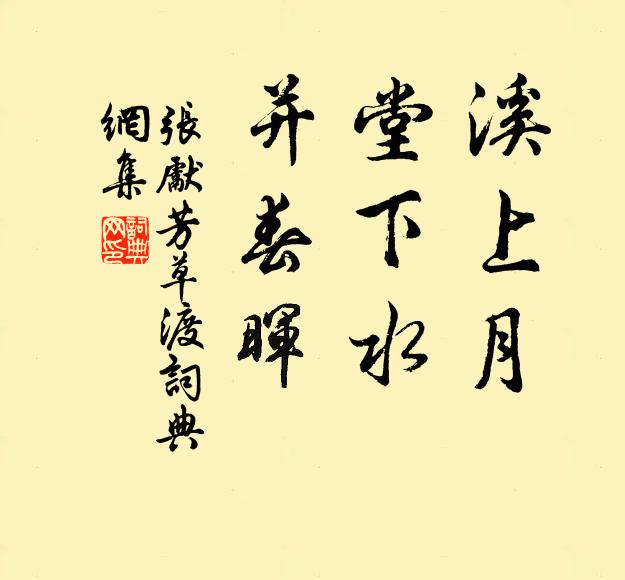 溪上月
堂下水
并春暉
張獻芳草渡詞典
網集
詞典
网印